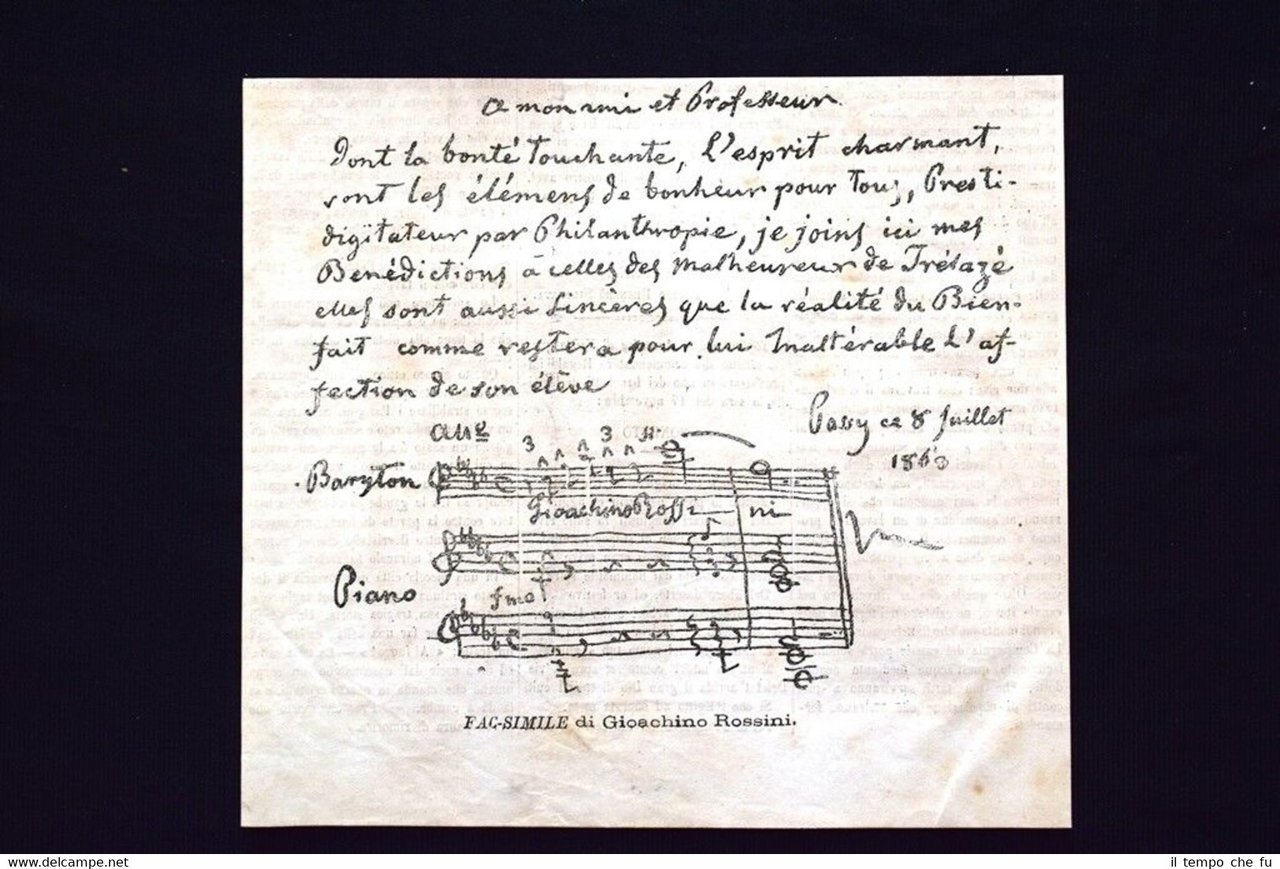 a mon ami et Professeur.
Dont la bonté Touchante, l'esprit charmant,
sont les élémens de bonheur pour Tous, Presti-
digitateur par Philanthropie, je joins ici mes
Benédictions à celles des Malheureux de Trélazé
elles sont aussi Sincères que la réalité du Bien-
fait comme restera pour lui Inaltérable l'af-
fection de son élève
Passy ce 8 Juillet
1863
All⁰
3 3
Baryton
Gioachino Rossi ni
Piano
fmo
FAC-SIMILE di Gioachino Rossini.
www.delcampe.net
il tempo che fu